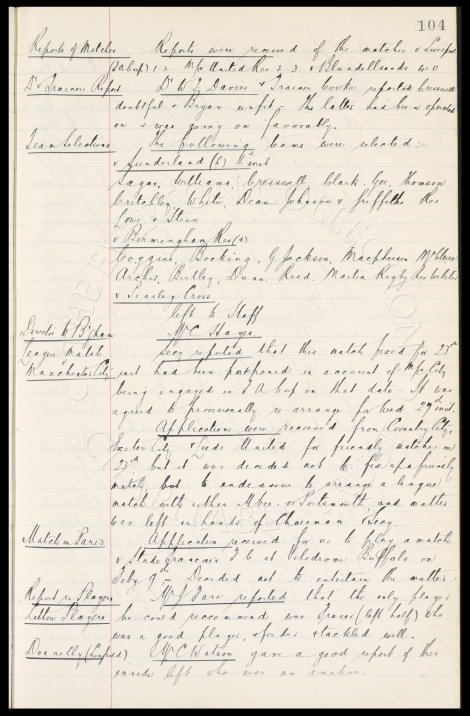 104
Reports of Matches Reports were received of the matches v Liverpool
(3 A Cup) 1-2 M/c United Res 2-3 & Blundellsands 4-0
Dr & Trainers Report Dr W J Davies & Trainer Cooke reported Cresswell
doubtful & Bryan unfit. The latter had been operated
on & was going on favorably.
Team Selections The following teams were selected:-
v Sunderland (h) inst
Sagar, Williams, Cresswell Clark, Gee, Thomson
Critchley, White, Dean Johnson & Griffiths Res
Lowe & Stein
v Birmingham Res (a)
Coggins, Bocking, G Jackson, Macpherson McClure
Archer, Birtley, Dunn, Reed, Martin Rigby Res Webster
v
left to Staff
Director to B'gham Mr C Hayes
League Match Secy reported that this match fixed for 23rd
Manchester City inst had been postponed on account of M/c City
being engaged in F A Cup on that date - It was
agreed to provisionally re-arrange for Wed 27th inst.
Applications were received from Coventry City,
Exeter City & Leeds United for friendly matches on
23rd but it was decided not to fix up a friendly
match but to endeavour to arrange a league
match with either or Portsmouth, and matter
was left in hands of Chairman & Secy.
Match in Paris Application received for us to play a match
v Stade Francais F C at Velodrome Buffalo on
Feby 9th - Decided not to entertain the matter.
Report re Players Mr J Fare reported that the only player
Players he could recommend was Fraser (left half) who
was a good player, & feeder & tackled well.
Donnelly Mr C Watson gave a good report of this
inside left who was an amateur.